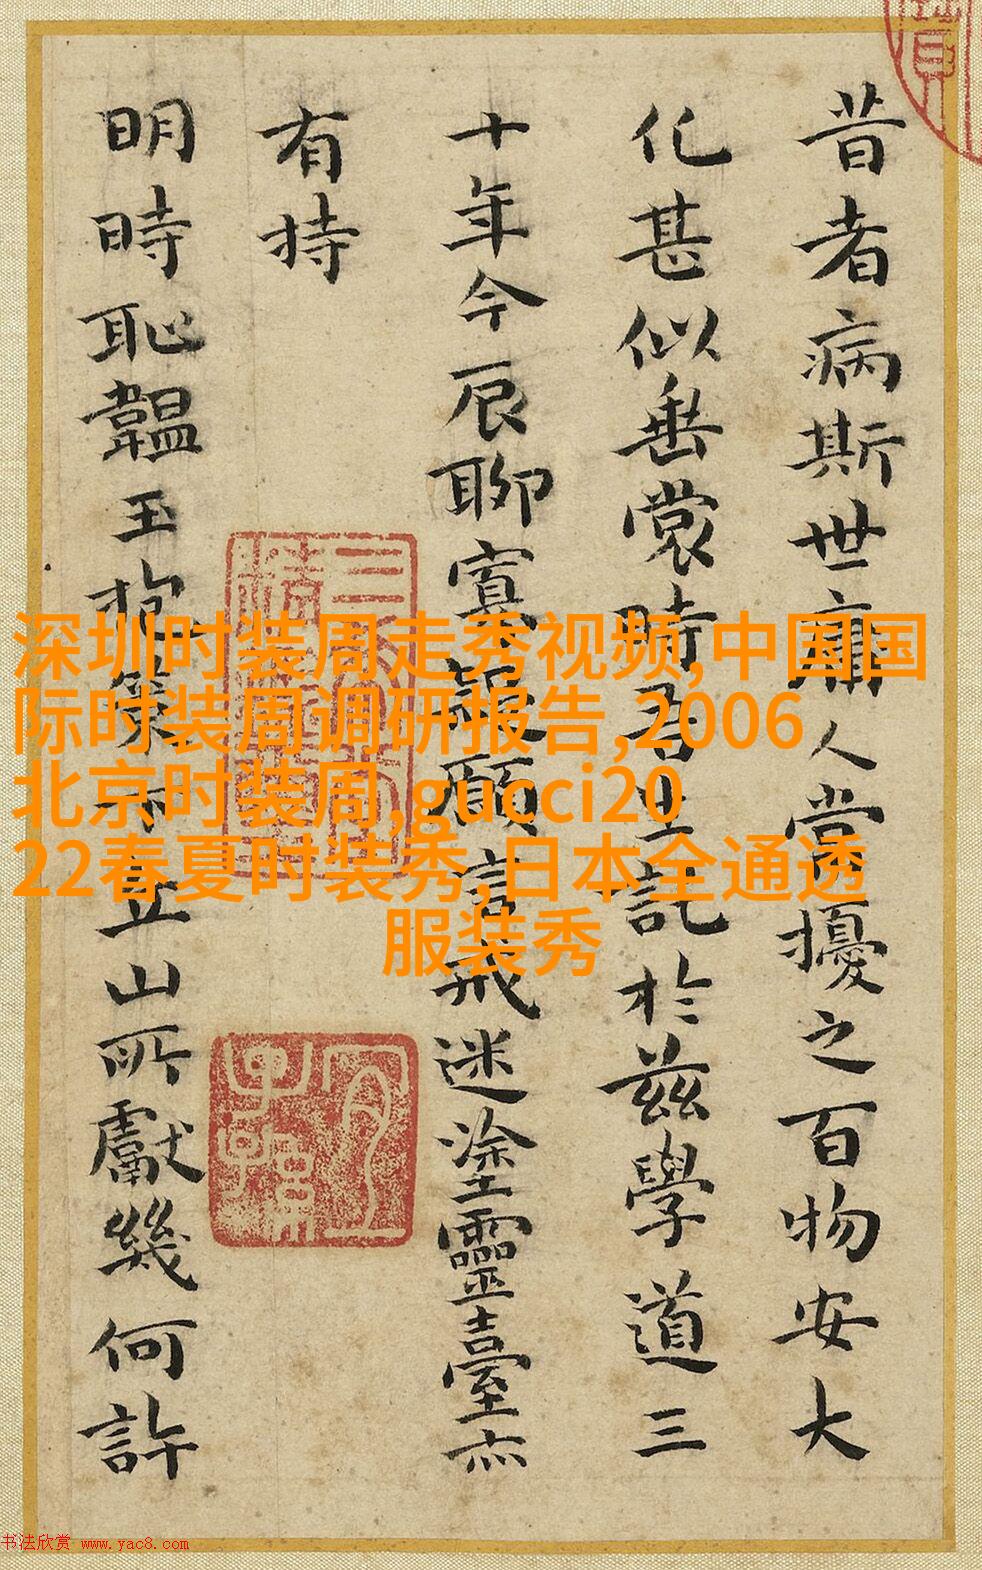 昔者病斯世庸人當擾之百物安大
化甚似垂裳時吾生託於茲學道三
十年今辰聊報願言戒迷塗靈臺亦
有持
明時恥韞玉抱策立山所獻幾何許
深圳时装周走秀视频,中国国
际时装周调研报告,2006
北京时装周,gucci20
22春夏时装秀,日本全通透
服装秀
书法欣赏 www.yac8.com